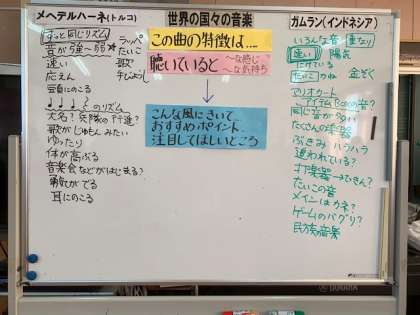 メヘテルハーネ(トルコ)
ずっと同じリズム
音が強〜弱
速い
応えん
耳にのこる
ラッパ
たいこ
歌
手びょうし
♩ ♩ ♩ のリズム
大名? 兵隊の行進?
歌がじゅもんみたい
ゆったり
体が高ぶる
音楽会などがはじまる?
勇気がでる
耳にのこる
世界の国々の音楽
この曲の特徴は....
聴いていると
〜な感じ
〜な気持ち
↓
こんな風にきいて...
おすすめポイント
注目してほしいところ
ガムラン(インドネシア)
いろんな音 重なり
速い 陽気
たたいている
たいこ 金ぞく
マリオカート
同じ音が多い
たくさんの楽器
ぶきみ ハラハラ
追われている?
打楽器
たいこの音
メインはカネ?
ゲームのバグり?
民族音楽